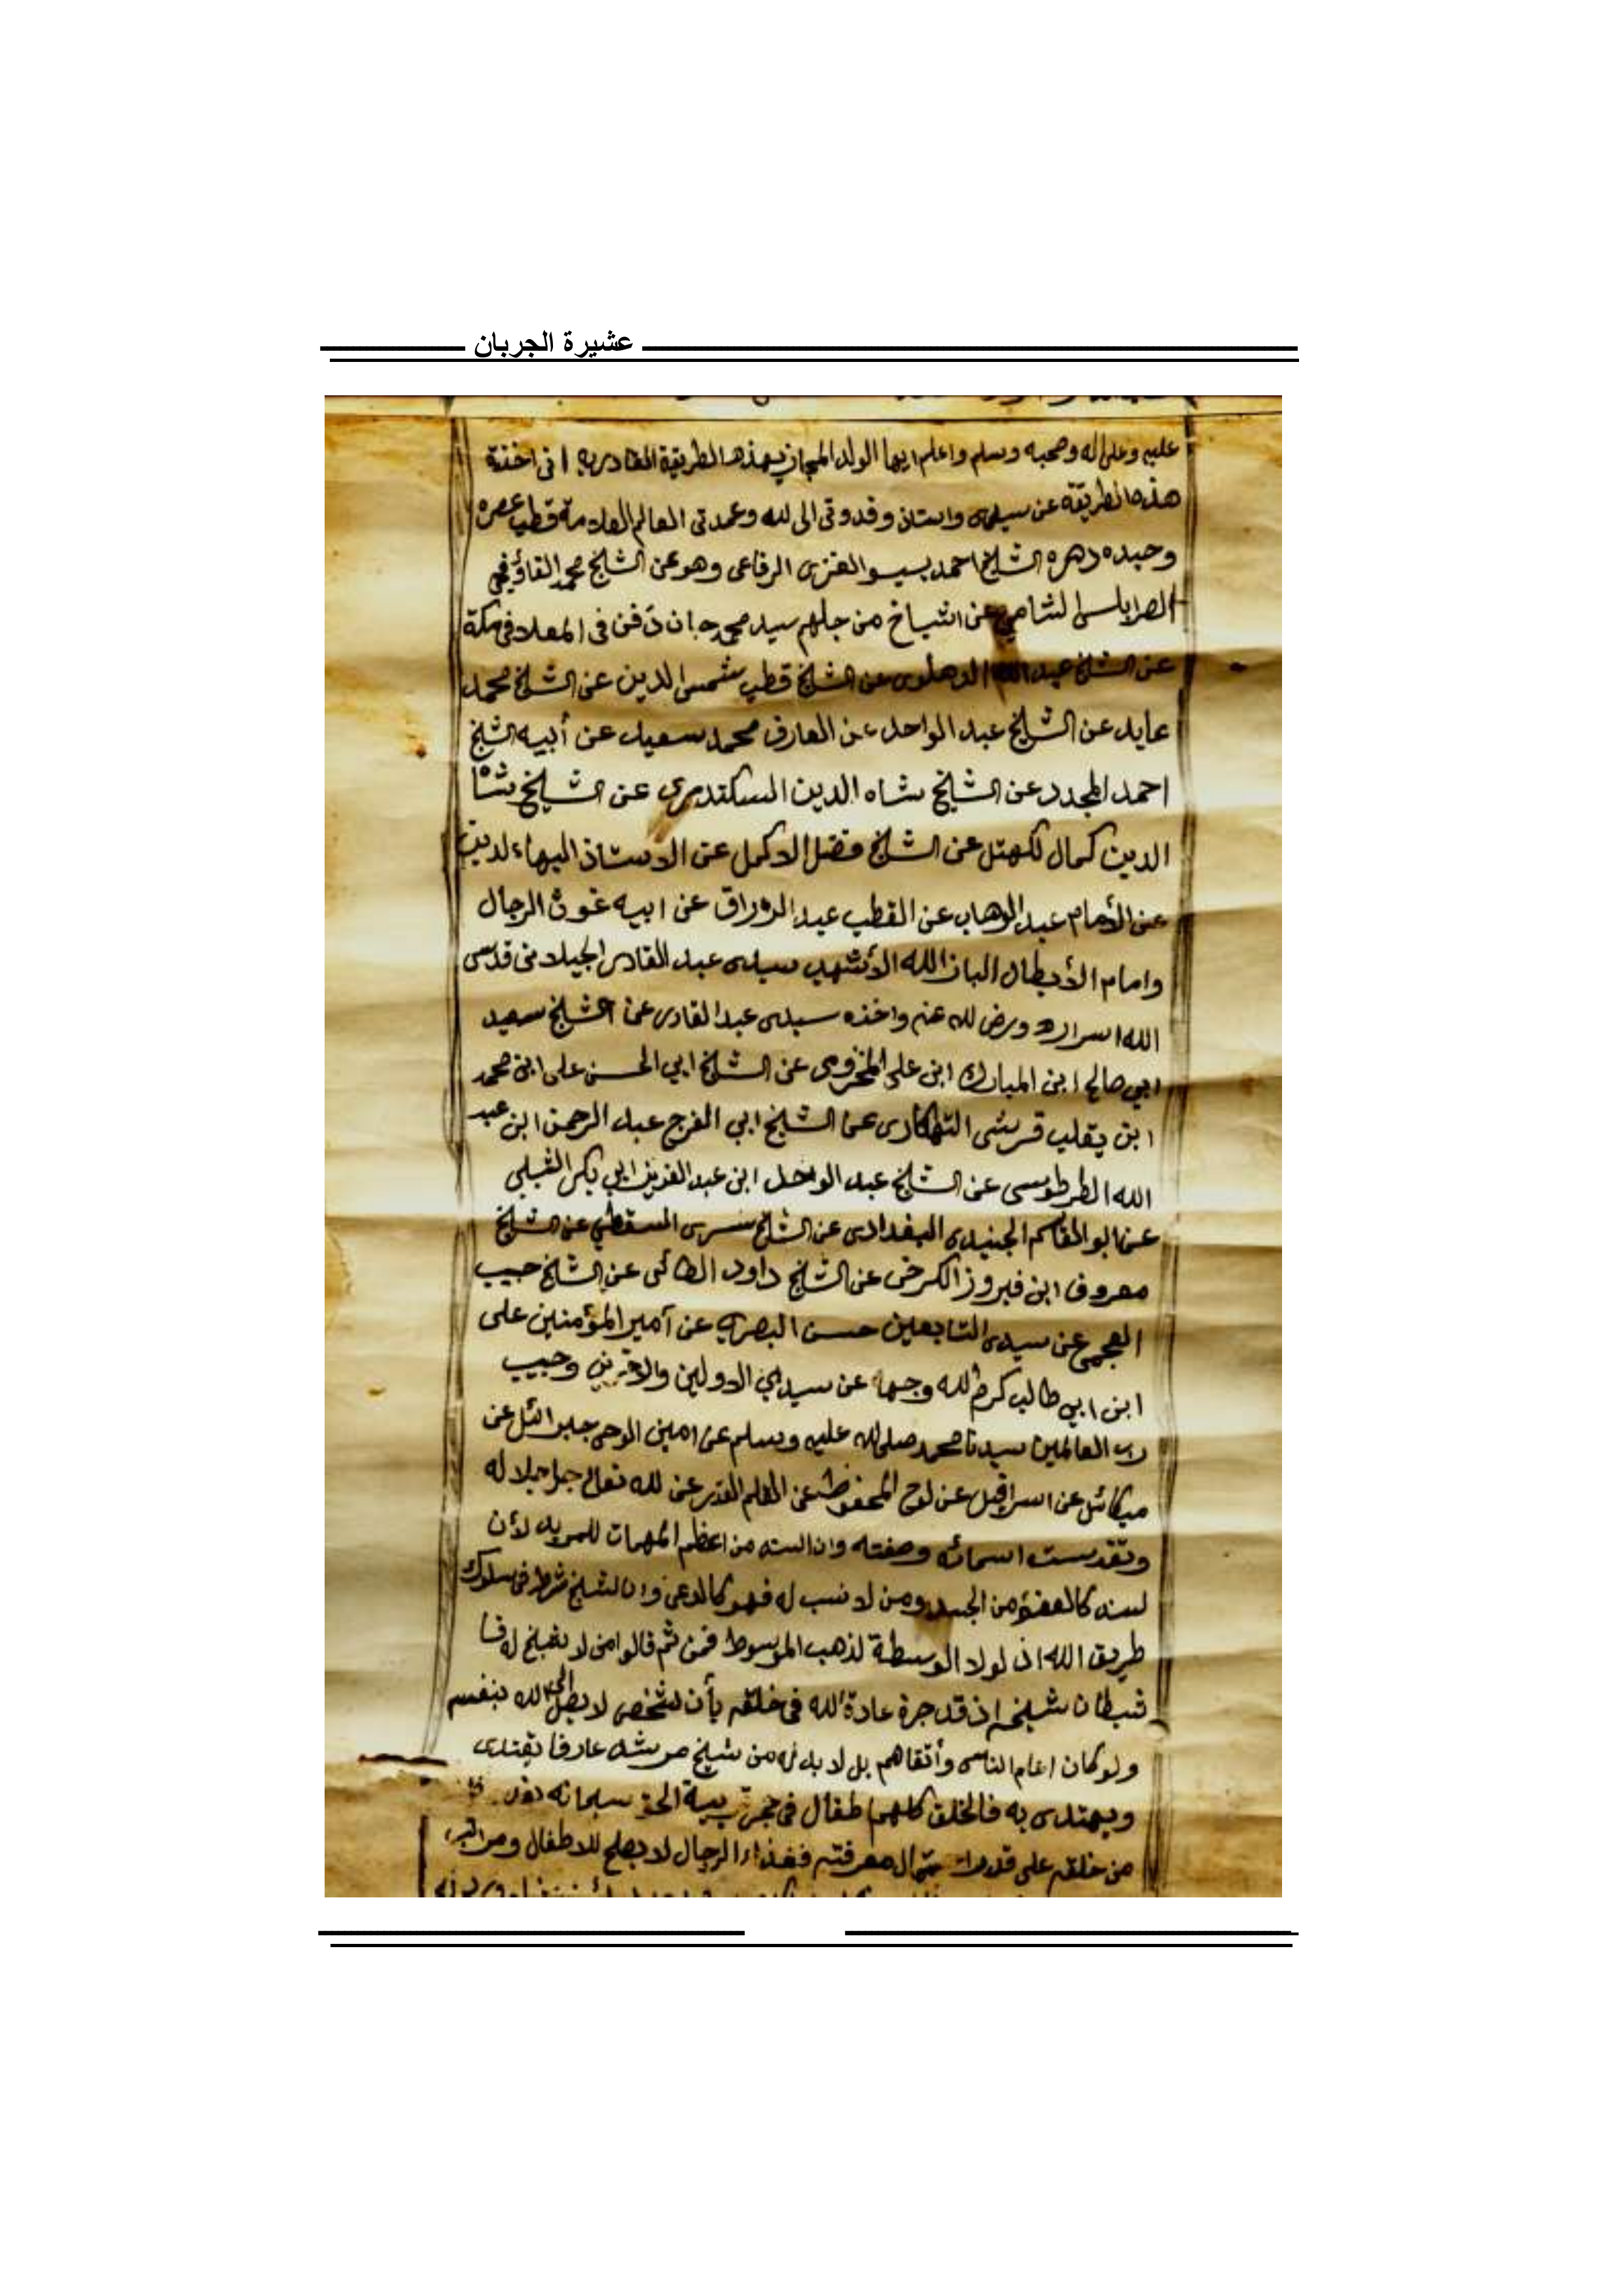 عشيرة الجربان
عليه وعلى اله وصحبه وسلم واعلم ايها الولد المجاز بهذه الطريقة القادريه انى اخذة
هذه الطريقة عن سيدى واستاذ وقدوتى الى لله وعمدتى العالم العلامة قطب عصره
وحيده دهره الشيخ احمد الغزى الرفاعى وهو عن الشيخ محمد القاؤقجي
الشامي عن اشياخ من جلهم سيد محمد جان دفن فى المعلا فى مكة
عن الشيخ عبد الله الدهلوى عن الشيخ قطب شمس الدين عن الشيخ محمد
عابد عن الشيخ عبد الواحد عن العارف محمد سعيد عن أبيه الشيخ
احمد المجدد عن الشيخ شاه الدين السكندرى عن الشيخ شاه
الدين كمال لكهتل عن الشيخ فضل الاكمل عن الاستاذ البهاء لدين
عن الأمام عبد الوهاب عن القطب عبد الرزاق عن ابيه غوث الرجال
وامام الأبطال الباز الله الأشهب سيدى عبد القادر الجيلانى قدس
الله اسراره ورض لله عنه واخذه سيدى عبد القادر عن الشيخ سعيد
ابي صالح ابن المبارك ابن على المخزومى عن الشيخ ابي الحسن على ابن محمد
ابن قرشى الهكارى عن الشيخ ابي الفرج عبد الرحمن ابن عبد
الله الطرطوسى عن الشيخ عبد الواحد ابن عبد العزيز ابي بكر الشبلي
عن ابو القاسم الجنيدى البغدادى عن الشيخ سرى السقطي عن الشيخ
معروف ابن فيروز الكرخى عن الشيخ داود الطائى عن الشيخ حبيب
العجمى عن سيدى التابعين حسن البصرى عن آمير المؤمنين على
ابن ابي طالب كرم لله وجهه عن سيدي الاولين والاخرين وحبيب
رب العالمين سيدنا محمد صلى لله عليه وسلم عن امين الوحى جبرائيل عن
ميكائل عن اسرافيل عن لوح المحفوظ عن القلم عن لله تعالى جل جلاله
وتقدست اسمائه وصفته وان السند من اعظم المهمات للمريد لأن
كالعضو من الجسد ومن لا نسب له فهو كالدعى وان لشيخ شرط فى سلوك
طريق الله اذ لولا الوسطة لذهب الموسوط فمن ثم قالوا من لا شيخ له فا
شيطان شيخه اذ قد جرة عادة لله فى خلقه بأن شخص لا يصل الى الله بنفسه
ولو كان اعلم الناس وأتقاهم بل لا بد له من شيخ مرشد عارفا يقتدى
ويهتدى به فالخلق كلهم اطفال فى حجر تربية الحق سبحانه
من خلقه على قدر معرفته فغذاء الرجال لا يصلح للاطفال